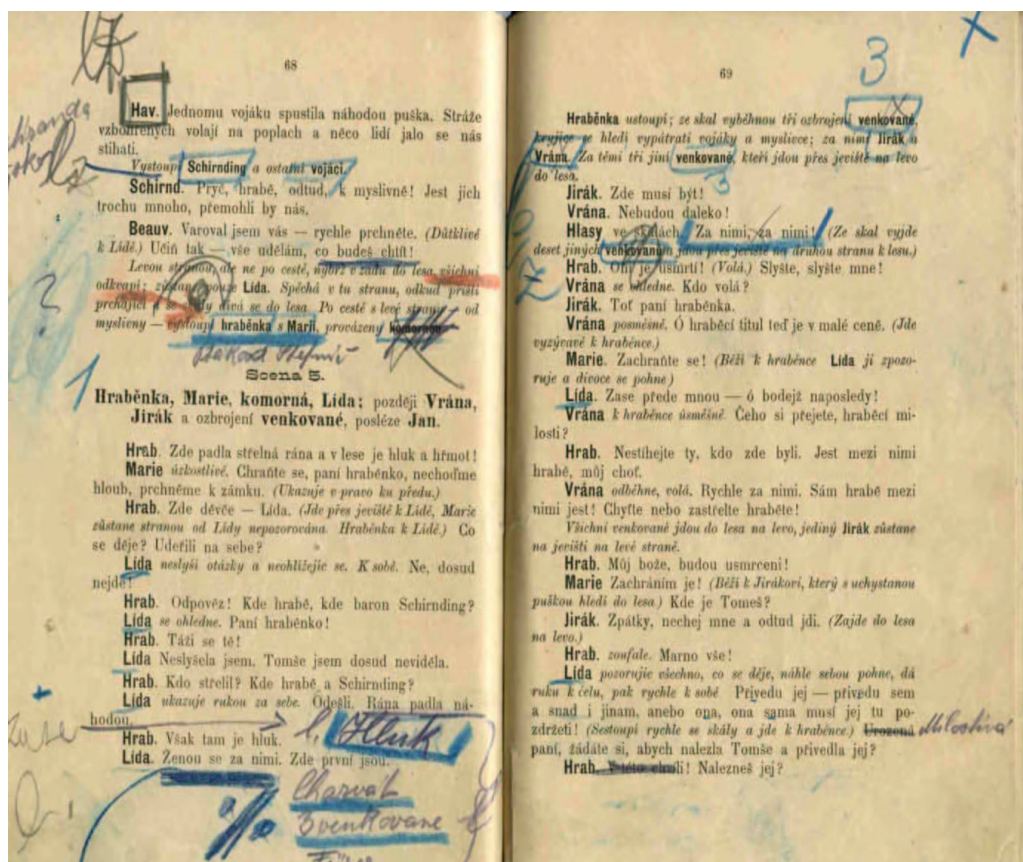 68
Hav. Jednomu vojáku spustila náhodou puška. Stráže
vzbouřených volají na poplach a něco lidí jalo se nás
stihati.
Vystoupí Schirnding a ostatní vojáci.
Schirnd. Pryč, hrabě, odtud, k myslivně! Jest jich
trochu mnoho, přemohli by nás.
Beauv. Varoval jsem vás — rychle prchněte. (Důtklivě
k Lídě.) Učiň tak — vše udělám, co budeš chtít!
Levou stranou, ale ne po cestě, nýbrž v zadu do lesa všichni
odkvapí; zůstane pouze Lída. Spěchá v tu stranu, odkud přišli
prchající a ze skály dívá se do lesa. Po cestě s levé strany — od
myslivny — vystoupí hraběnka s Marií, provázený komornou.
Scena 5.
Hraběnka, Marie, komorná, Lída; později Vrána,
Jirák a ozbrojení venkované, posléze Jan.
Hrab. Zde padla střelná rána a v lese je hluk a hřmot!
Marie úzkostlivě. Chraňte se, paní hraběnko, nechoďme
hloub, prchněme k zámku. (Ukazuje v pravo ku předu.)
Hrab. Zde děvče — Lída. (Jde přes jeviště k Lídě, Marie
zůstane stranou od Lídy nepozorována. Hraběnka k Lídě.) Co
se děje? Udeřili na sebe?
Lída neslyší otázky a neohlížejíc se. K sobě. Ne, dosud
nejde!
Hrab. Odpověz! Kde hrabě, kde baron Schirnding?
Lída se ohledne. Paní hraběnko!
Hrab. Táži se tě!
Lída Neslyšela jsem. Tomše jsem dosud neviděla.
Hrab. Kdo střelil? Kde hrabě a Schirnding?
Lída ukazuje rukou za sebe. Odešli. Rána padla ná-
hodou.
Zase
Hluk
Hrab. Však tam je hluk.
Lída. Ženou se za nimi. Zde první jsou.
Charvát
3 venkované
69
3
Hraběnka ustoupí; ze skal vyběhnou tři ozbrojení venkované,
kryjíce se hledí vypátrati vojáky a myslivce; za nimi Jirák a
Vrána. Za těmi tři jiní venkované, kteří jdou přes jeviště na levo
do lesa.
Jirák. Zde musí být!
Vrána. Nebudou daleko!
Hlasy ve skalách. Za nimi, za nimi! (Ze skal vyjde
deset jiných venkovanů a jdou přes jeviště na druhou stranu k lesu.)
Hrab. Oni je usmrtí! (Volá.) Slyšte, slyšte mne!
Vrána se ohledne. Kdo volá?
Jirák. Toť paní hraběnka.
Vrána posměšně. Ó hraběcí titul teď je v malé ceně. (Jde
vyzývavě k hraběnce.)
Marie. Zachraňte se! (Běží k hraběnce Lída ji zpozo-
ruje a divoce se pohne)
Lída. Zase přede mnou — ó bodejž naposledy!
Vrána k hraběnce úsměšně. Čeho si přejete, hraběcí mi-
losti?
Hrab. Nestíhejte ty, kdo zde byli. Jest mezi nimi
hrabě, můj choť.
Vrána odběhne, volá. Rychle za nimi. Sám hrabě mezi
nimi jest! Chyťte nebo zastřelte hraběte!
Všichni venkované jdou do lesa na levo, jediný Jirák zůstane
na jevišti na levé straně.
Hrab. Můj bože, budou usmrceni!
Marie Zachráním je! (Běží k Jirákovi, který s uchystanou
puškou hledí do lesa.) Kde je Tomeš?
Jirák. Zpátky, nechej mne a odtud jdi. (Zajde do lesa
na levo.)
Hrab. zoufale. Marno vše!
Lída pozorujíc všechno, co se děje, náhle sebou pohne, dá
ruku k čelu, pak rychle k sobě Privedu jej — přivedu sem
a snad i jinam, anebo ona, ona sama musí jej tu po-
zdržeti! (Sestoupí rychle se skály a jde k hraběnce.) Urozená Milostivá
paní, žádáte si, abych nalezla Tomše a přivedla jej?
Hrab. V této chvíli! Nalezneš jej?